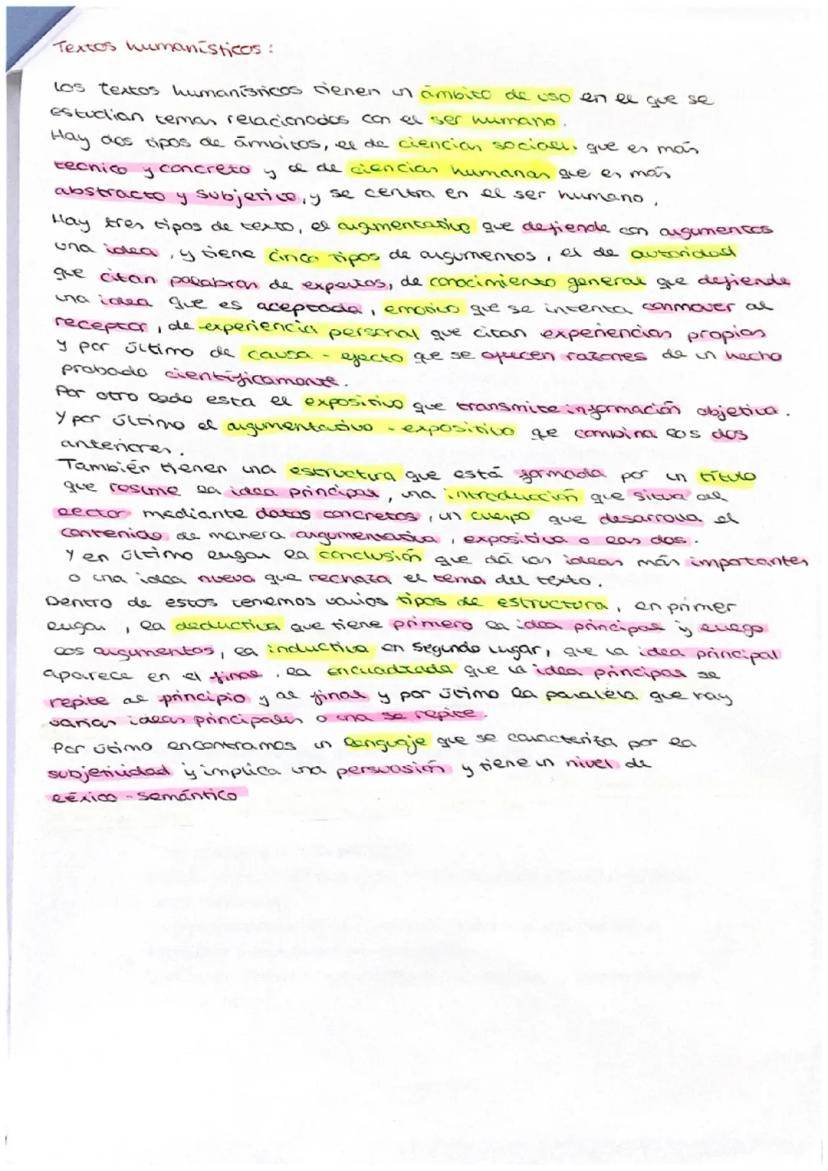 Textos humanísticos:
Los textos humanísticos tienen un ámbito de uso en el que se
estudian temas relacionados con el ser humano.
Hay dos tipos de ámbitos, el de ciencias sociales que es más
técnico y concreto y el de ciencias humanas que es más
abstracto y subjetivo, y se centra en el ser humano,
Hay tres tipos de texto, el argumentativo que defiende con argumentos
una idea, y tiene cinco tipos de argumentos, el de autoridad
que citan palabras de expertos, de conocimiento general que defiende
una idea que es aceptada, emotivo que se intenta conmover al
receptor, de experiencia personal que citan experiencias propias
y por último de causa - efecto que se ofrecen razones de un hecho
probado científicamente.
Por otro lado esta el expositivo que transmite información objetiva.
Y por último el argumentativo - expositivo que combina los dos
anteriores.
También tienen una estructura que está formada por un título
que resume la idea principal, una introducción que situa al
lector mediante datos concretos, un cuerpo que desarrolla el
contenido de manera argumentativa, expositiva o las dos.
Y en último lugar la conclusión que dá las ideas más importantes
o una idea nueva que rechaza el tema del texto.
Dentro de estos tenemos varios tipos de estructura, en primer
lugar, la deductiva que tiene primero la idea principal y luego
los argumentos, la inductiva en segundo lugar, que la idea principal
aparece en el final, la encuadrada que la idea principal se
repite al principio y al final y por último la paralela que hay
varias ideas principales o una se repite.
Por último encontramos un lenguaje que se caracteriza por la
subjetividad y implica una persuasión y tiene un nivel de
léxico - semántico